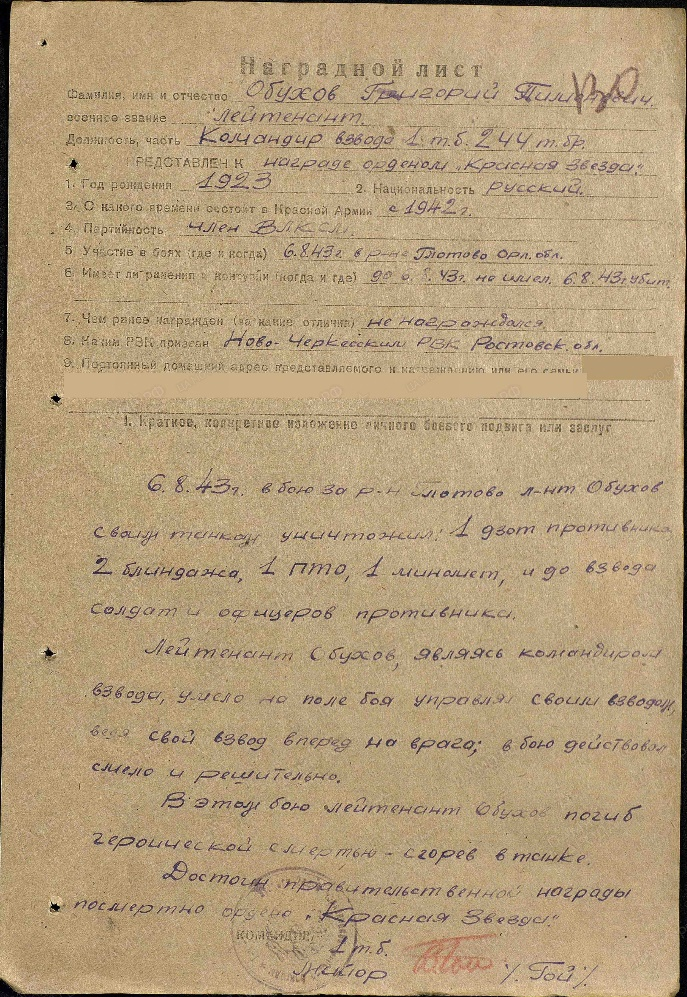 Наградной лист
Фамилия, имя и отчество Обухов Григорий
военное звание Лейтенант.
Должность, часть Командир взвода 1 т.б. 244 т.бр.
ПРЕДСТАВЛЕН К награде орденом „Красная Звезда".
1. Год рождения 1923 2. Национальность русский.
3. С какого времени состоит в Красной Армии с 1942 г.
4. Партийность член ВЛКСМ.
5. Участие в боях (где и когда) 6.8.43 г. в р-не Глотово Орл. обл.
6. Имеет ли ранения и контузии (когда и где) до 6.8.43 г. не имел. 6.8.43 г. убит.
7. Чем ранее награжден (за какие отличия) не награждался.
8. Каким РВК призван Ново-Черкесским РВК Ростовск. обл.
9. Постоянный домашний адрес представляемого к награждению или его семьи
1. Краткое, конкретное изложение личного боевого подвига или заслуг
6.8.43 г. в бою за р-н Глотово л-нт Обухов
своим танком уничтожил: 1 дзот противника
2 блиндажа, 1 ПТО, 1 миномет, и до взвода
солдат и офицеров противника.
Лейтенант Обухов, являясь командиром
взвода, умело на поле боя управлял своим взводом,
ведя свой взвод вперед на врага; в бою действовал
смело и решительно.
В этом бою лейтенант Обухов погиб
героической смертью - сгорев в танке.
Достоин правительственной награды
посмертно ордена „Красная Звезда".
КОМАНДИР
1 т.б.
Майор /Гой/.